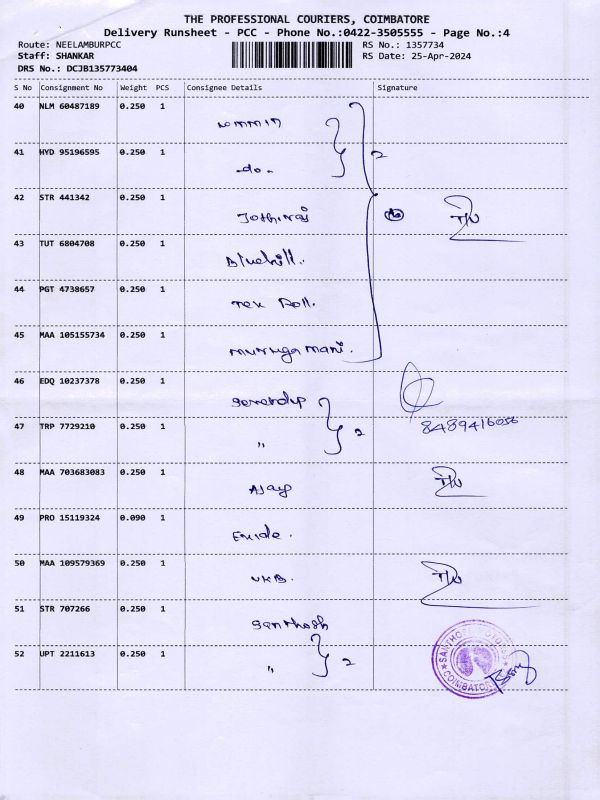 THE PROFESSIONAL COURIERS, COIMBATORE
Delivery Runsheet - PCC - Phone No.:0422-3505555 - Page No.:4
Route: NEELAMBURPCC RS No.: 1357734
Staff: SHANKAR RS Date: 25-Apr-2024
DRS No.: DCJB135773404
S No Consignment No Weight PCS Consignee Details Signature
40 NLM 60487189 0.250 1
41 HYD 95196595 0.250 1 -do- 2
42 STR 441342 0.250 1 Jothiraj
43 TUT 6804708 0.250 1 Bluehill.
44 PGT 4738657 0.250 1 Tex
45 MAA 105155734 0.250 1 Muruga mani.
46 EDQ 10237378 0.250 1
47 TRP 7729210 0.250 1 " 2 8489416056
48 MAA 703683083 0.250 1 Ajay
49 PRO 15119324 0.090 1 Exide.
50 MAA 109579369 0.250 1
51 STR 707266 0.250 1 Santhosh
52 UPT 2211613 0.250 1 " 2
COIMBATORE